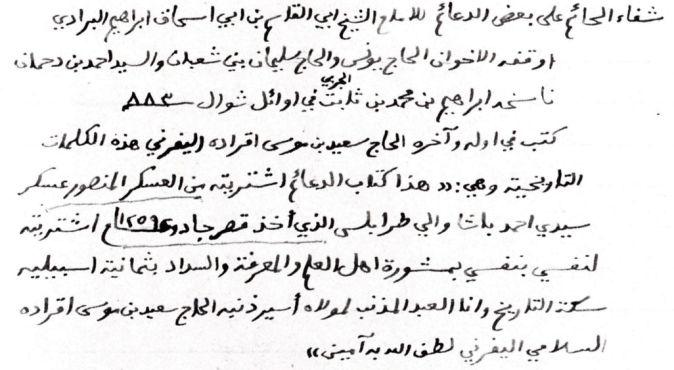 شفاء الحائم على بعض الدعائم للامام الشيخ ابي القاسم بن ابي اسحاق ابراهيم البرادي
اوقفه الاخوان الحاج يونس والحاج سليمان بني شعبان والسيد احمد بن دحمان
ناسخه ابراهيم بن محمد بن ثابت الجربي في اوائل شوال سنة ٨٨٣
كتب في اوله وآخره الحاج سعيد بن موسى اقراده اليفرني هذه الكلمات
التاريخية وهي: «هذا كتاب الدعائم اشتريته من العسكر المنصور عسكر
سيدي احمد باشا والي طرابلس الذي أخذ قصر جادو اشتريته
لنفسي بنفسي بمشورة اهل العلم والمعرفة والسداد بثمانية اسبيليه
سكة التاريخ وانا العبد المذنب لمولاه أسير ذنبه الحاج سعيد بن موسى اقراده
السلامي اليفرني لطف الله به آمين»